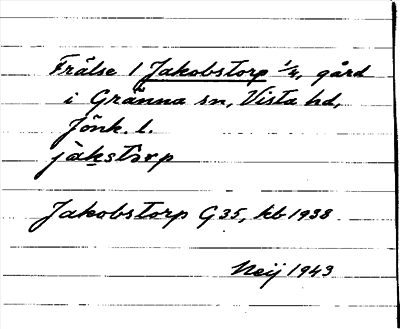 Frälse 1 Jakobstorp 1/4, gård
i Gränna sn, Vista hd,
Jönk. l.
jàkstòrp
Jakobstorp G35, kb 1938
Neij 1943